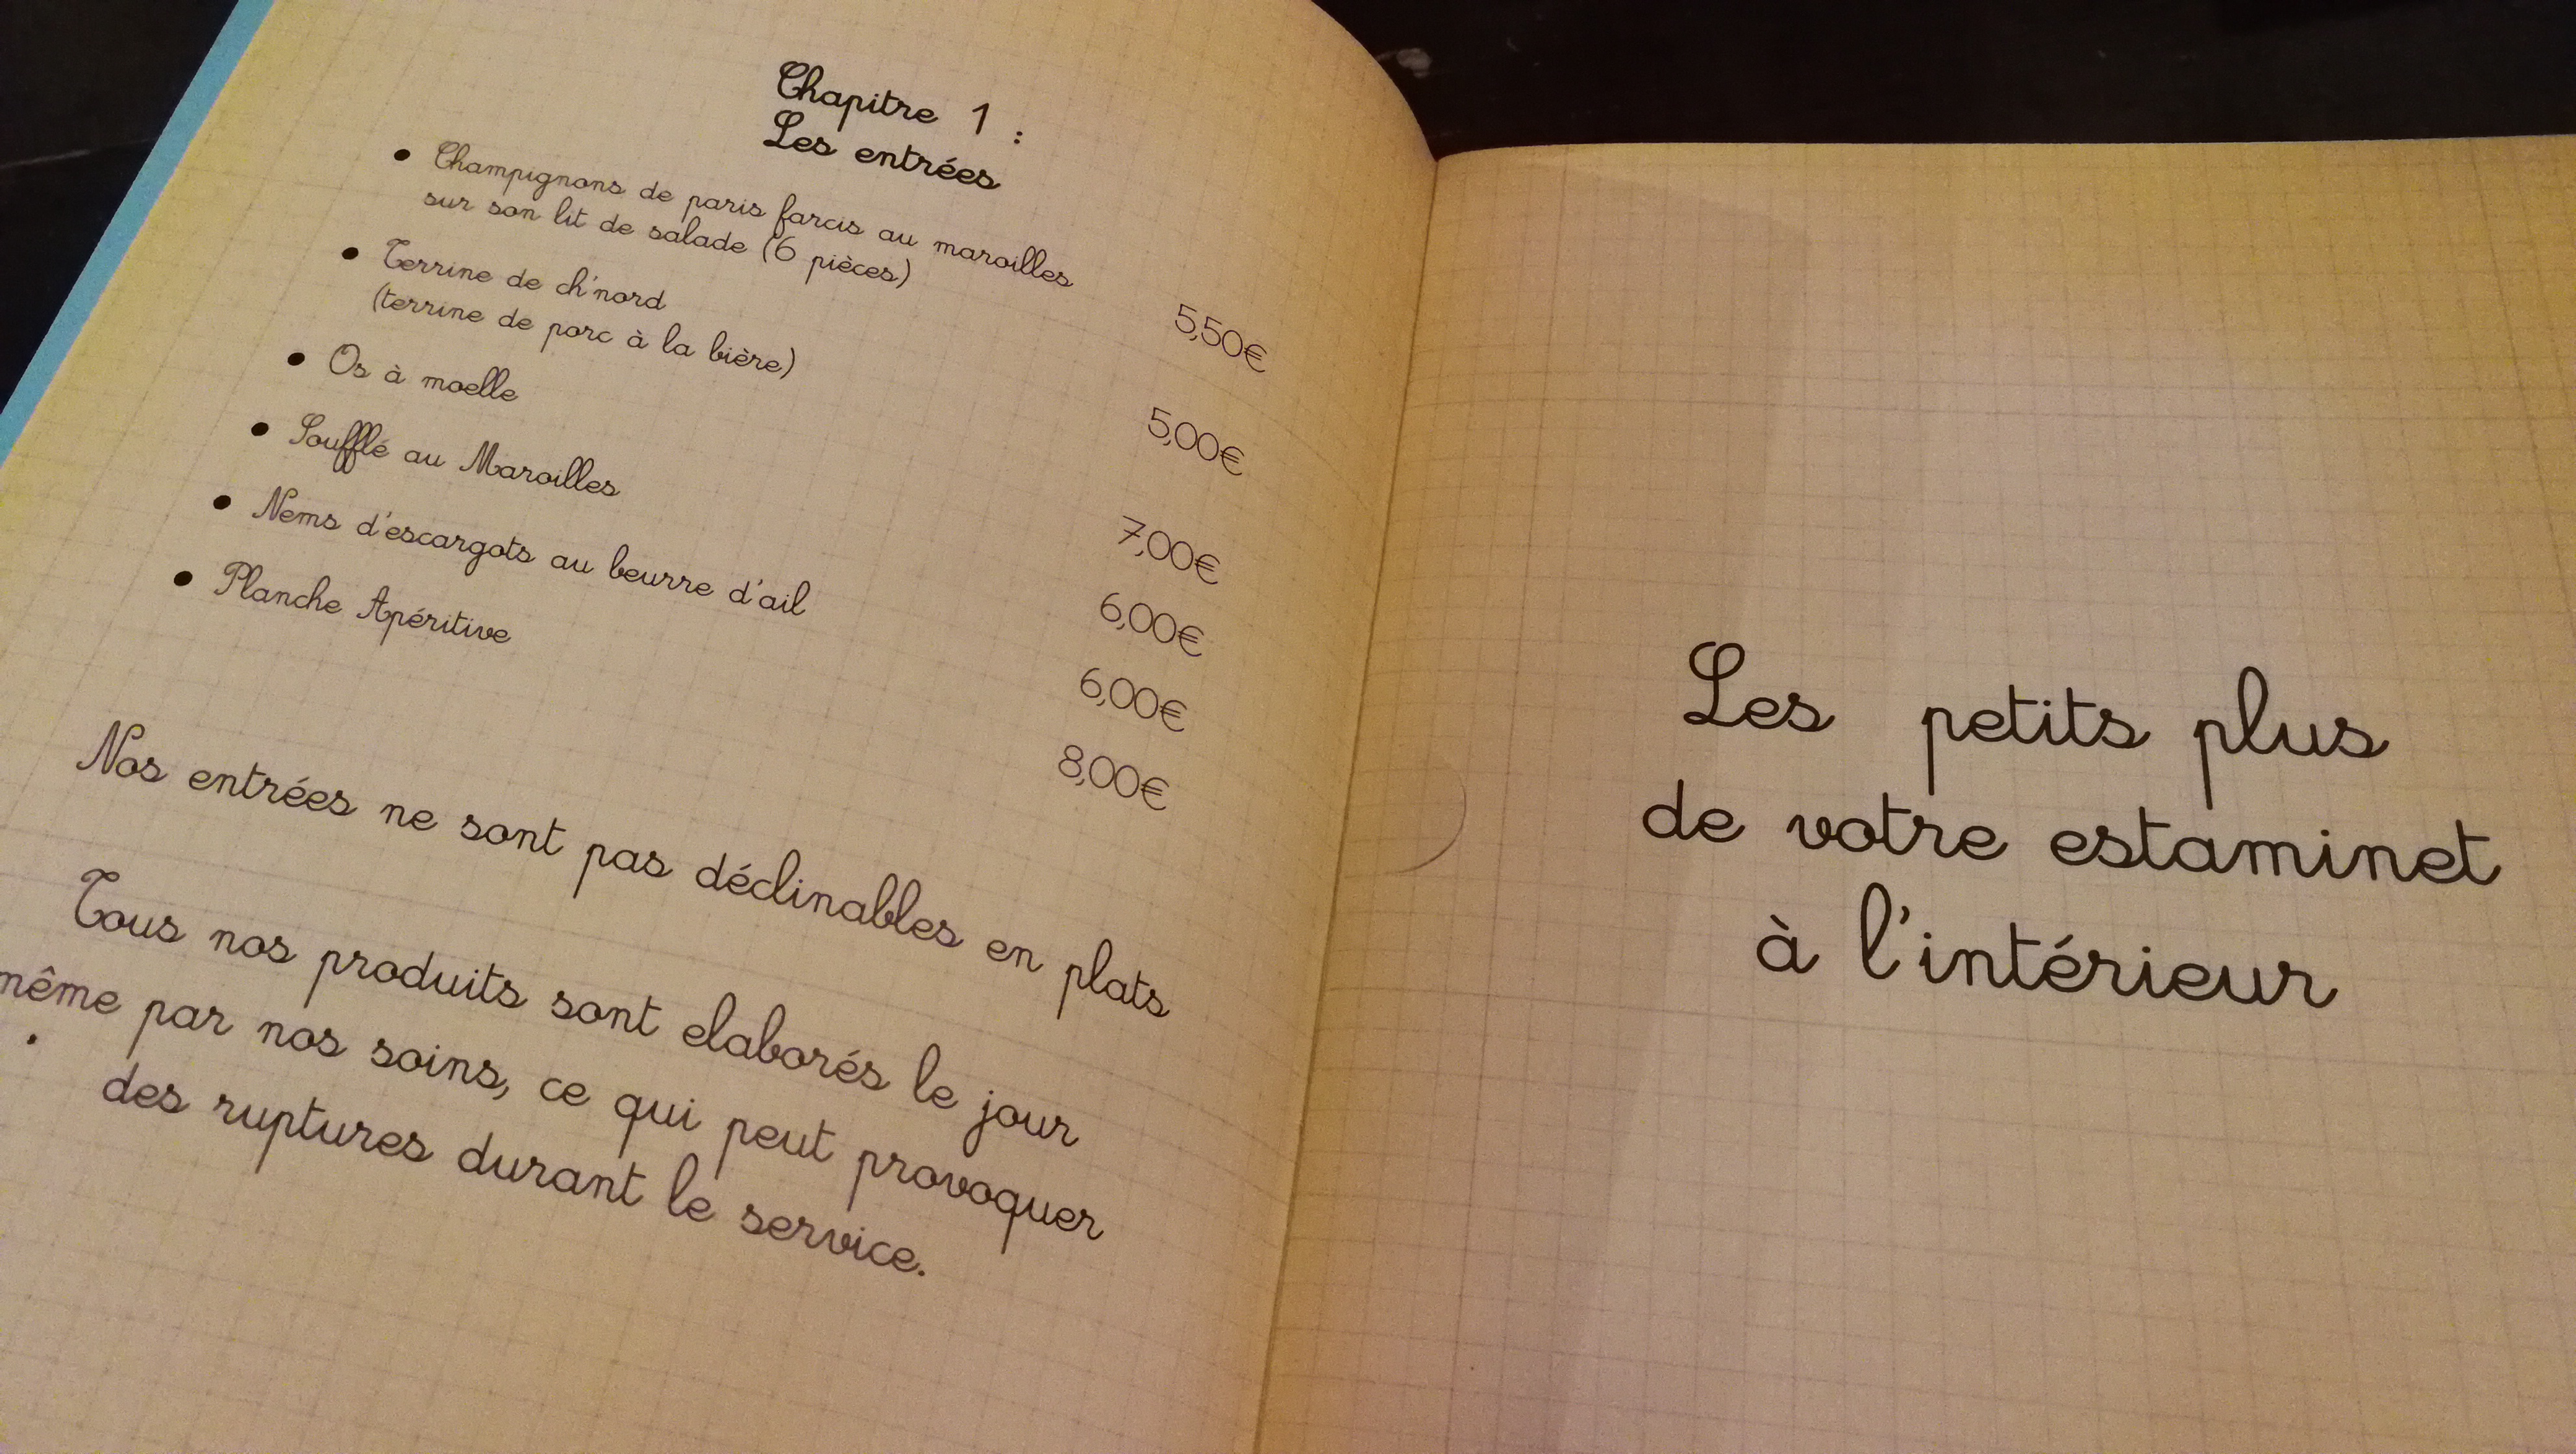 Chapitre 1 :
Les entrées
• Champignons de paris farcis au maroilles
sur son lit de salade (6 pièces)
5,50€
• Terrine de ch'nord
(terrine de porc à la bière)
5,00€
• Os à moelle
7,00€
• Soufflé au Maroilles
6,00€
• Nems d'escargots au beurre d'ail
6,00€
• Planche Apéritive
8,00€
Nos entrées ne sont pas déclinables en plats
Tous nos produits sont elaborés le jour
même par nos soins, ce qui peut provoquer
des ruptures durant le service.
Les petits plus
de votre estaminet
à l'intérieur